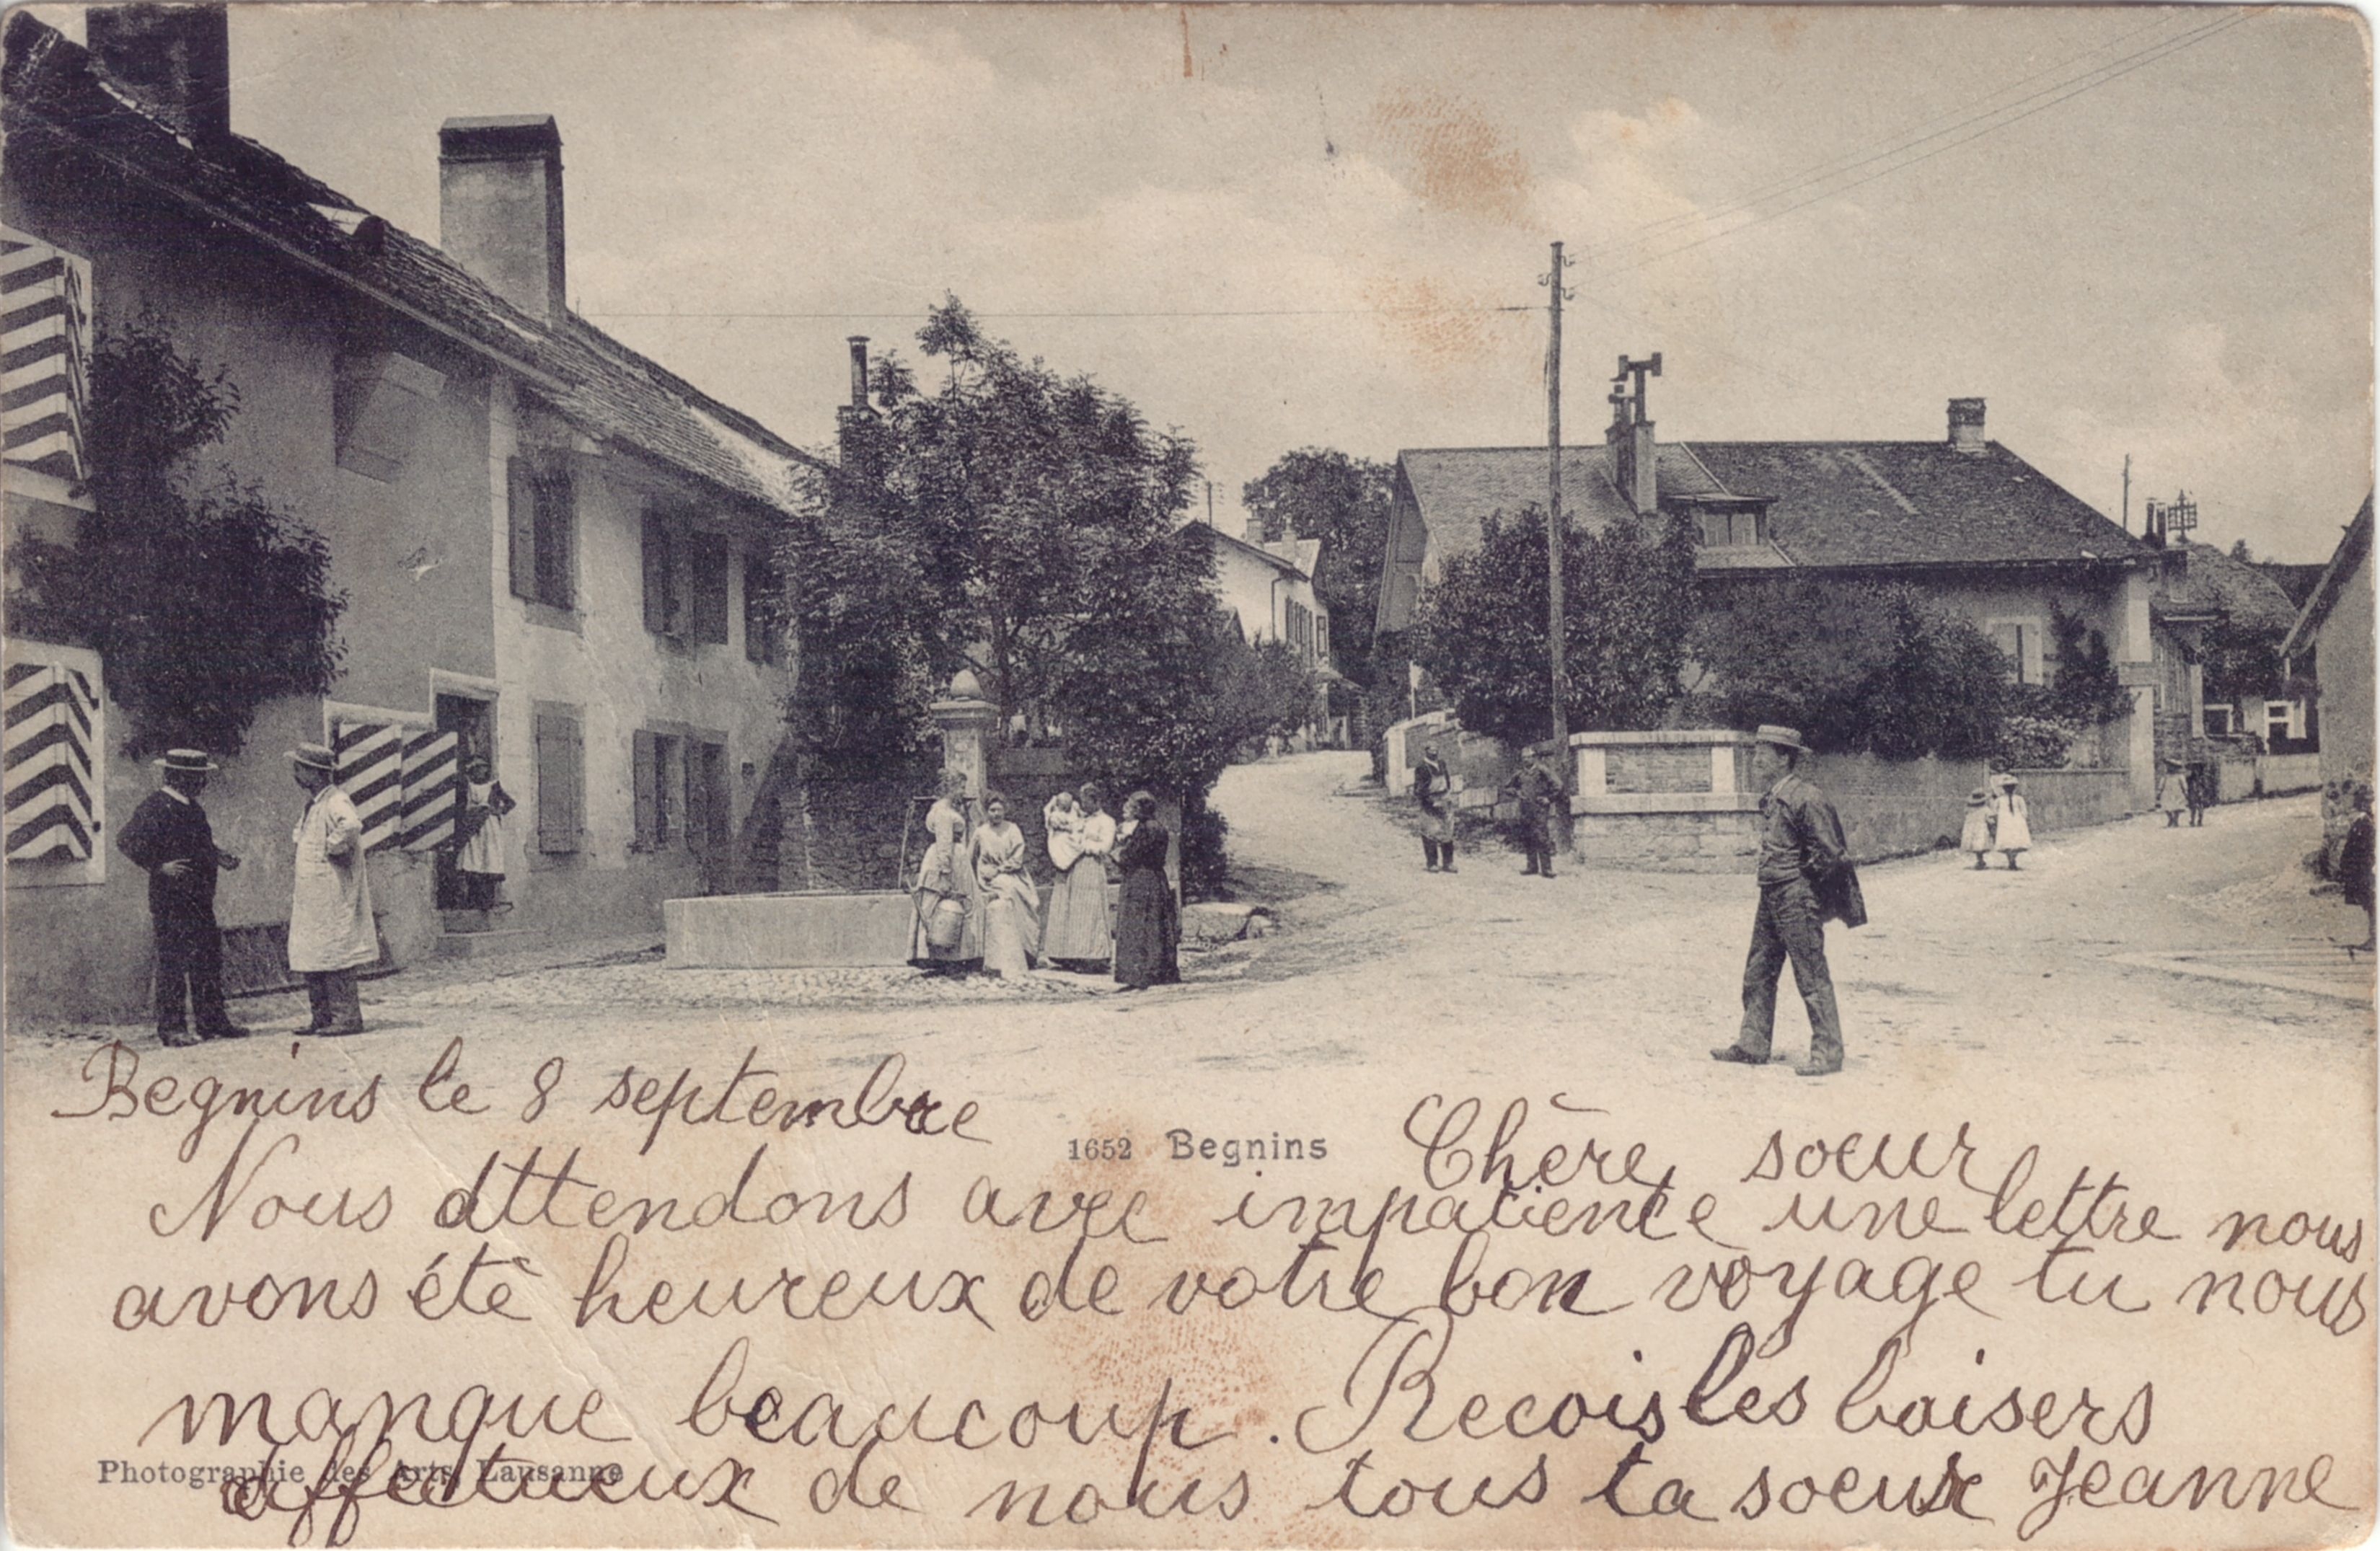 Begnins le 8 septembre
1652 Begnins
Chère soeur
Nous attendons avec impatience une lettre nous
avons été heureux de votre bon voyage tu nous
manque beaucoup. Recois les baisers
Photographie des Arts, Lausanne
affectueux de nous tous ta soeur Jeanne